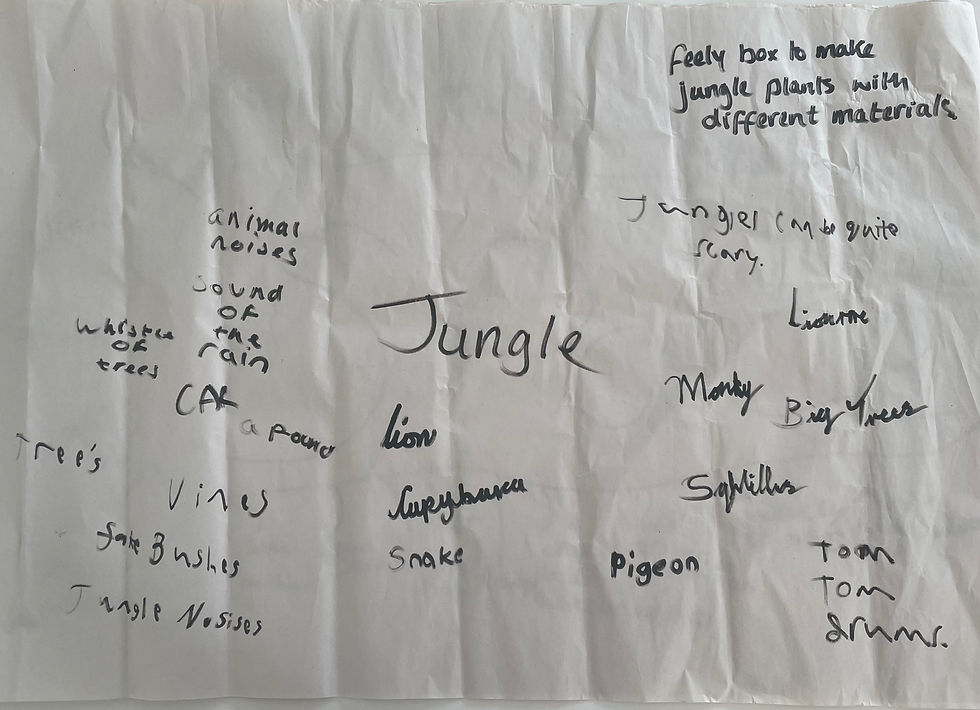 feely box to make
jungle plants with
different materials
animal
noises
Jungles can be quite
scary.
sound
of
the
rain
whistle
of
trees
Jungle
Monky
Big Trees
CAR
a pound
lion
Tree's
Vines
Snake
Pigeon
fake Bushes
Jungle Nosises
Tom
Tom
drums.